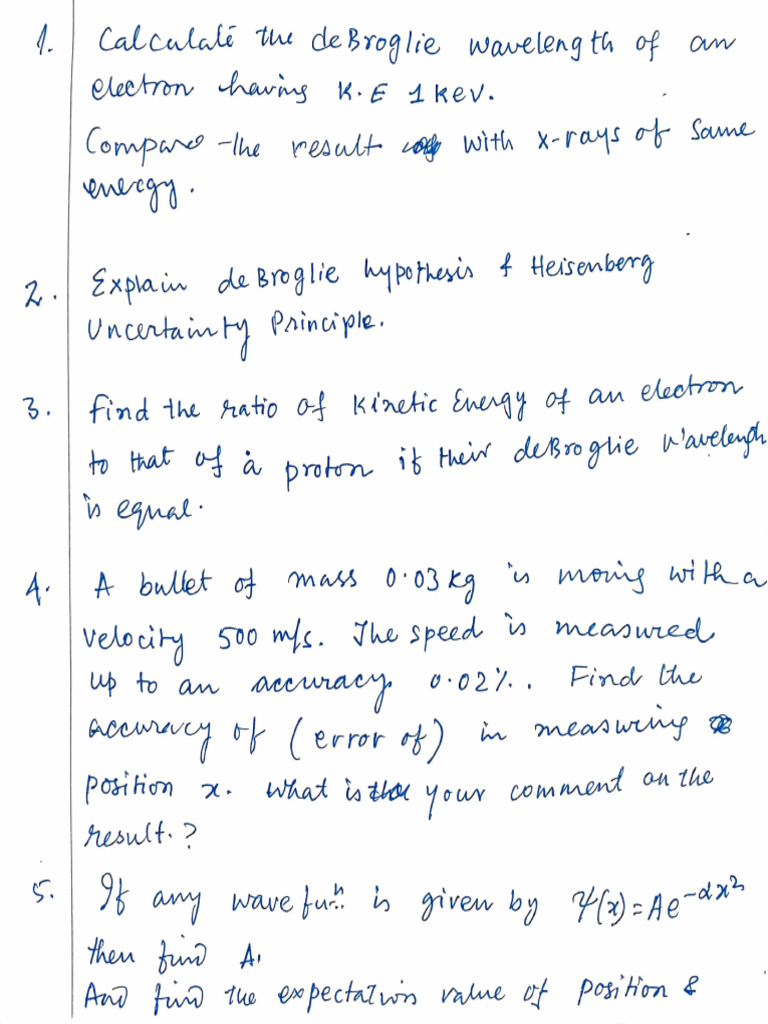 1. Calculate the deBroglie wavelength of an
electron having K.E 1 keV.
Compare the result with x-rays of same
energy.
2. Explain deBroglie hypothesis & Heisenberg
Uncertainty Principle.
3. find the ratio of Kinetic Energy of an electron
to that of a proton if their deBroglie Wavelength
is equal.
4. A bullet of mass 0.03 kg is moving with a
velocity 500 m/s. The speed is measured
up to an accuracy 0.02%. Find the
accuracy of (error of) in measuring
position x. What is your comment on the
result.?
5. If any wave fun.ⁿ is given by ψ(x) = Ae^{-αx²}
then find A,
And find the expectation value of position &